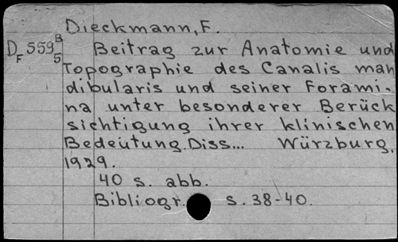 Dieckmann, F.
D 559 B
F 5
Beitrag zur Anatomie und
Topographie des Canalis man
dibularis und seiner Forami-
na unter besonderer Berück
sichtigung ihrer klinischen
Bedeutung. Diss... Würzburg,
1929.
40 s. abb.
Bibliogr. s. 38-40.